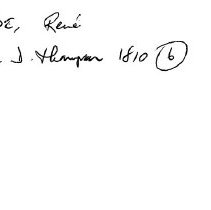 DE, René
J. Thompson 1810 (6)